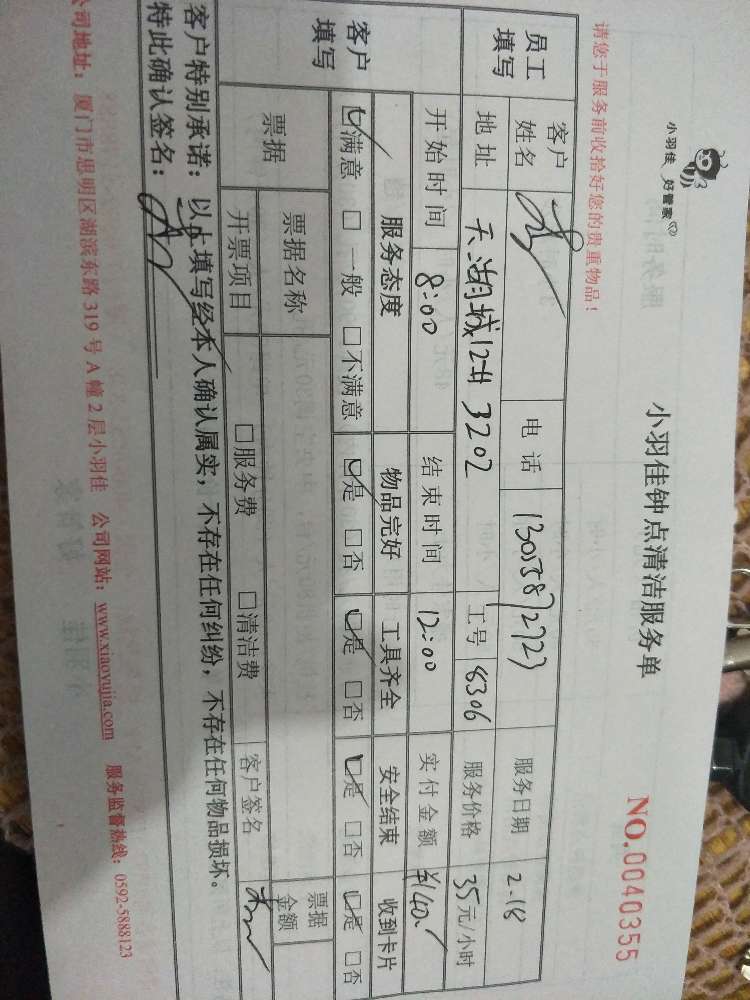 小羽佳 好管家
小羽佳钟点清洁服务单
NO.0040355
请您于服务前收拾好您的贵重物品！
员工填写 客户姓名 电话 服务日期 2.18
地址 天湖城12# 3202 工号 8306 服务价格 35元/小时
开始时间 8:00 结束时间 12:00 实付金额 ¥140
客户填写 服务态度 物品完好 工具齐全 安全结束 收到卡片
☑满意 □一般 □不满意 ☑是 □否 ☑是 □否 ☑是 □否 ☑是 □否
票据 票据名称 票据金额
开票项目 □服务费 □清洁费 客户签名
客户特别承诺：以上填写经本人确认属实，不存在任何纠纷，不存在任何物品损坏。
特此确认签名：
公司地址：厦门市思明区湖滨东路319号A幢2层小羽佳 公司网站：www.xiaoyujia.com 服务监督热线：0592-5888123